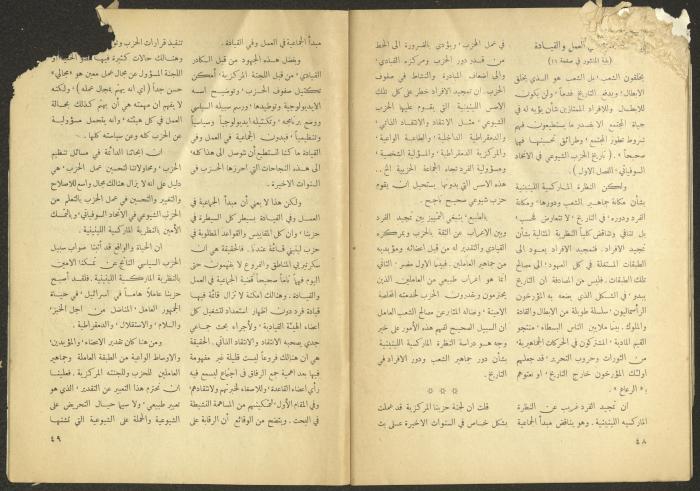 في العمل والقيادة
(بقية المنشور في صفحة ١١)
يخلقون الشعب، بل الشعب هو الذي يخلق
الابطال، ويدفع التاريخ قدماً، ولن يكون
للابطال وللافراد الممتازين شأن يؤبه له في
حياة المجتمع الا بقدر ما يستطيعون فهم
شروط تطور المجتمع، وطرائق تحسينها فهماً
صحيحاً». (تاريخ الحزب الشيوعي في الاتحاد
السوفياتي، الفصل الاول).
ولكن النظرة الماركسية اللينينية
بشأن مكانة جماهير الشعب ودورها، ومكانة
الفرد ودوره، في التاريخ، لا تتعارض فحسب،
بل تتنافى وتتناقض كلياً النظرية المثالية بشأن
تمجيد الافراد. فتمجيد الافراد يعود الى
الطبقات المستغلة في كل العهود، الى مصالح
تلك الطبقات. فليس من المصادفة ان التاريخ
يبدو، في الشكل الذي يضعه به المؤرخون
الرأسماليون، سلسلة طويلة من الابطال والقادة
والملوك. بينما ملايين الناس البسطاء، منتجو
القيم المادية، المشتركون في الحركات الجماهيرية،
من الثورات وحروب التحرير، قد جعلهم
اولئك المؤرخون خارج التاريخ، او نعتوهم
بـ «الرعاع».
ان تمجيد الفرد غريب عن النظرة
الماركسية اللينينية. وهو يناقض مبدأ الجماعية
٤٨
في عمل الحزب، ويؤدي بالضرورة الى الحط
من قدر دور الحزب ومركزه القيادي،
والى اضعاف المبادرة والنشاط في صفوف
الحزب. ان تمجيد الافراد خطر على كل تلك
الاسس اللينينية التي يقوم عليها الحزب
الشيوعي، مثل الانتقاد والانتقاد الذاتي،
والديمقراطية الداخلية، والطاعة الواعية،
والمركزية الديمقراطية، والمسؤولية الشخصية،
ومسؤولية الفرد تجاه الجماعة الحزبية الخ..
هذه الاسس التي بدونها يستحيل ان يقوم
حزب شيوعي ناجح.
بالطبع، ينبغي التمييز بين تمجيد الفرد
وبين الاعراب عن الثقة بالحزب وبمركزه
القيادي والتقدير له من قبل اعضائه ومؤيديه
من جماهير العاملين. فبينما الاول مضر، الثاني
انما هو اعراب طبيعي من العاملين الذين
يحترمون ويقدرون الحزب لخدمته المخلصة
الامينة، ونضاله المثابر عن مصالح الشعب العامل
ان السبيل الصحيح لفهم هذه الأمور على خير
وجه هو دراسة النظرة الماركسية اللينينية
بشأن دور جماهير الشعب ودور الافراد في
التاريخ.
* * *
قلت ان لجنة حزبنا المركزية قد عملت
بشكل خاص في السنوات الاخيرة على بث
مبدأ الجماعية في العمل وفي القيادة.
وبفضل هذه الجهود من قبل الكادر
القيادي، من قبل اللجنة المركزية، أمكن
تكتيل صفوف الحزب، وتوضيح اسسه
الايديولوجية وتوطيدها، ورسم سبيله السياسي
ووضع برنامجه، وتكتيله ايديولوجياً وسياسياً
وتنظيمياً، فبدون الجماعية في العمل وفي
القيادة ما كنا لنستطيع ان نتوصل الى هذا كله،
الى هذه النجاحات التي احرزها الحزب في
السنوات الاخيرة.
ولكن هذا لا يعني أن مبدأ الجماعية في
العمل وفي القيادة يسيطر كل السيطرة في
حزبنا، وان كل المقاييس والقواعد المطلوبة في
حزب لينيني قائمة عندنا. فالحقيقة هي ان
سكرتيريي المناطق والفروع لا يفهمون حتى
اليوم فهماً تاماً صحيحاً قضية الجماعية في العمل
والقيادة. وهنالك امكنة لا تزال قائمة فيها
قيادة فرد دون اظهار استعداد لتشغيل كل
اعضاء الهيئة القيادية، ولأجراء بحث جماعي
جدي يصحبه الانتقاد والانتقاد الذاتي. الحقيقة
هي ان هنالك فروعاً ليست قليلة غير مفهومة
فيها بعد اهمية جمع الرفاق في اجتماع ليسمع فيه
رأي اعضاء القاعدة، وللاصغاء لخبرتهم ولانتقادهم
وفي المقام الأول، لتمكينهم من المساهمة النشيطة
في البحث. ويتضح من الوقائع أن الرقابة على
تنفيذ قرارات الحزب
وهنالك حالات كثيرة فيها
اللجنة المسؤول عن مجال عمل معين هو «مجالي»
حسن جداً (اي انه يهتم بمجال عمله)، ولكنه
لا يفهم ان مهمته هي أن يهتم كذلك بحالة
العمل في كل هيئته، وانه يتحمل مسؤولية
عن الحزب كله وعن سياسته كلها.
ان ابحاثنا الدائمة في مسائل تنظيم
الحزب، ومحاولاتنا لتحسين عمل الحزب، هي
دليل على أنه لا يزال هنالك مجال واسع للاصلاح
والتغيير والتحسين في عمل الحزب بالتعلم من
الحزب الشيوعي في الاتحاد السوفياتي، وبالتمسك
الأمين بالنظرية الماركسية اللينينية.
ان الحياة والواقع قد أثبتا صواب سبيل
الحزب السياسي الناتج عن تمسكنا الامين
بالنظرية الماركسية اللينينية. فلقد أصبح
حزبنا عاملاً هاماً في اسرائيل، في حياة
الجمهور العامل، المناضل من اجل الخبز،
والسلام، والاستقلال، والديمقراطية.
ومن هنا كان تقدير الاعضاء، والمؤيدين،
والاوساط الواعية من الطبقة العاملة وجماهير
العاملين للحزب وللجنته المركزية. فعلينا
ان نحترم هذا التعبير عن التقدير، الذي هو
تعبير طبيعي، ولا سيما حيال التحريض على
الشيوعية والحملة على الشيوعية التي تشنها
٤٩